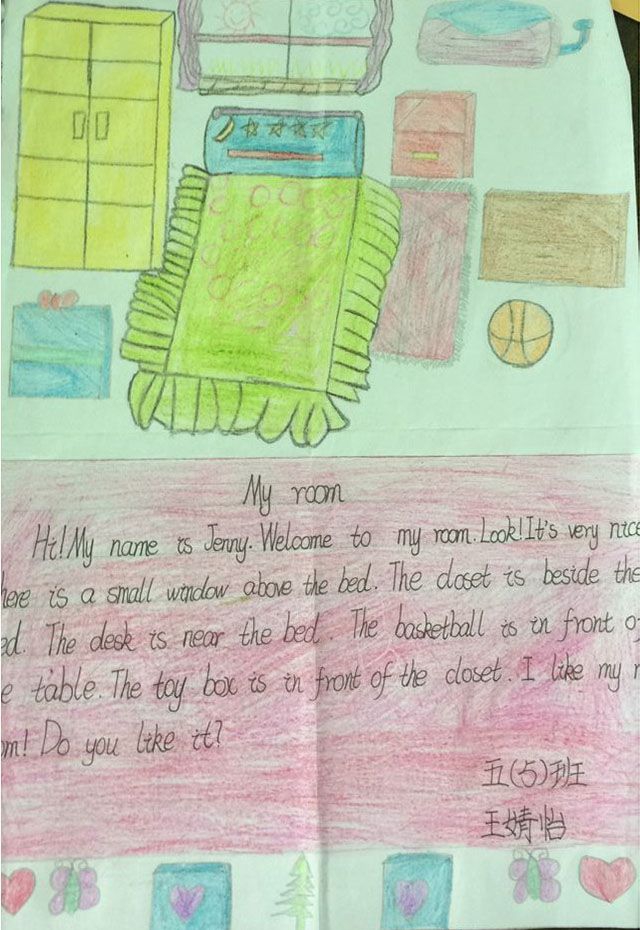 My room
Hi! My name is Jenny. Welcome to my room. Look! It's very nice
here is a small window above the bed. The closet is beside the
ed. The desk is near the bed. The basketball is in front o
e table. The toy box is in front of the closet. I like my r
om! Do you like it?
五(5)班
王婧怡